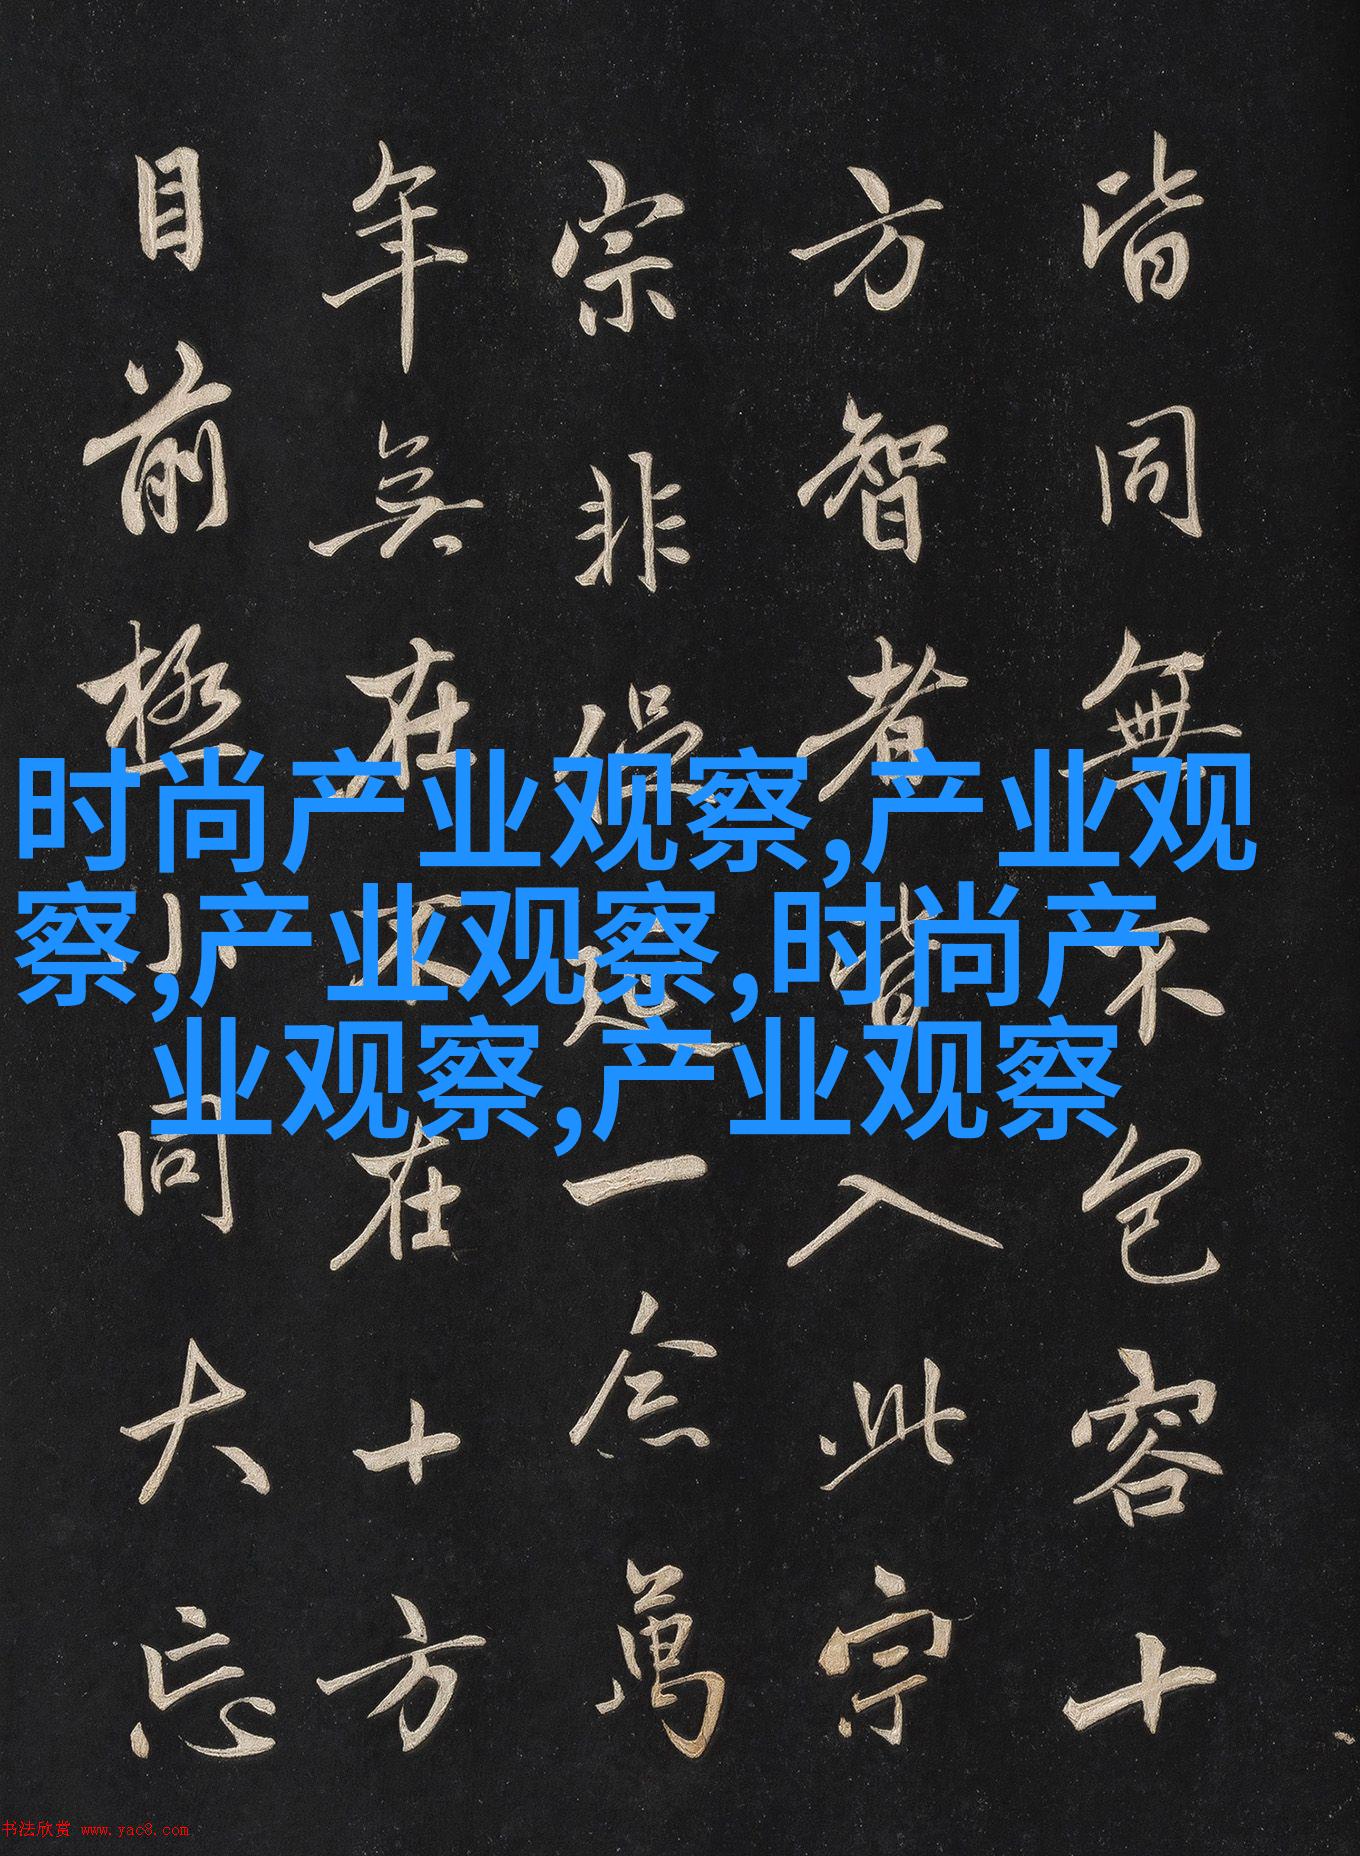 皆同無不包容十
方智者皆入此宗
宗非促延一念萬
年無在不在十方
目前極小同大忘
时尚产业观察,产业观
察,产业观察,时尚产
业观察,产业观察
书法欣赏 www.yac8.com